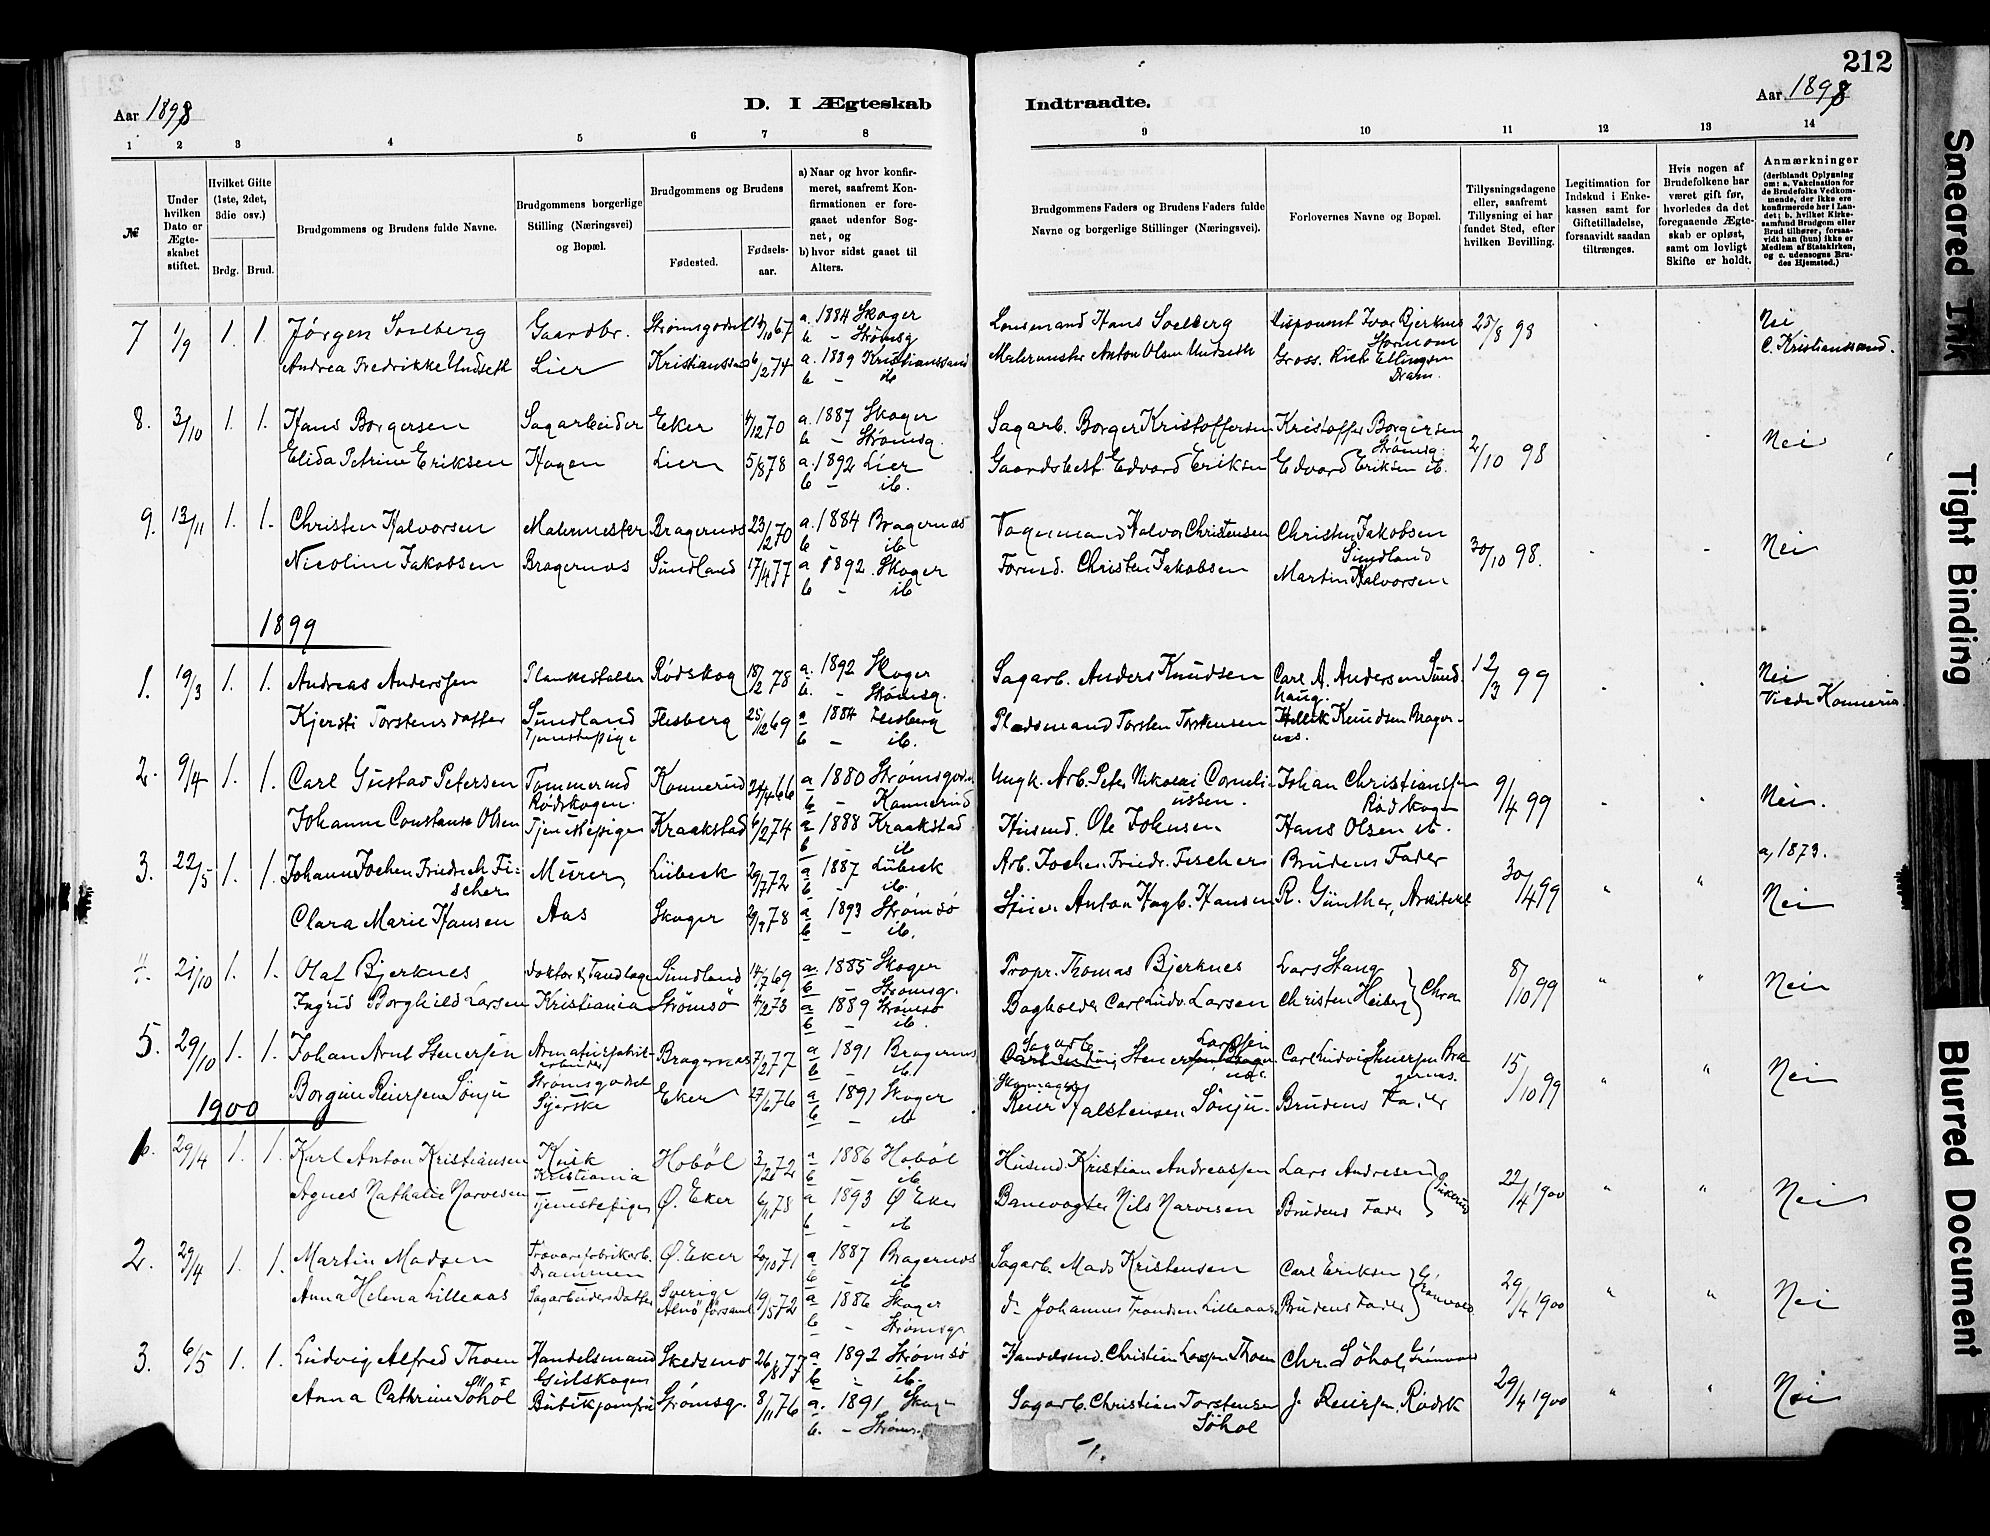 212
Aar 1898
D. I Ægteskab
Indtraadte.
Aar 1898
1 2 3 4 5 6 7 8
9 10 11 12 13 14
№
Under hvilken Dato er Ægteskabet stiftet.
Hvilket Gifte (1ste, 2det, 3die osv.)
Brdg. Brud.
Brudgommens og Brudens fulde Navne.
Brudgommens borgerlige Stilling (Næringsvei) og Bopæl.
Brudgommens og Brudens
Fødested.
Fødselsaar.
a) Naar og hvor konfirmeret, saafremt Konfirmationen er foregaaet udenfor Sognet, og
b) hvor sidst gaaet til Alters.
Brudgommens Faders og Brudens Faders fulde Navne og borgerlige Stillinger (Næringsvei).
Forlovernes Navne og Bopæl.
Tillysningsdagene eller, saafremt Tillysning ei har fundet Sted, efter hvilken Bevilling.
Legitimation for Indskud i Enkekassen samt for Giftetilladelse, forsaavidt saadan tiltrænges.
Hvis nogen af Brudefolkene har været gift før, hvorledes da det foregaaende Ægteskab er opløst, samt om lovligt Skifte er holdt.
Anmærkninger (deriblandt Oplysning om: a. Vakcination for de Brudefolks Vedkommende, der ikke ere konfirmerede her i Landet; b. hvilket Kirkesamfund Brudgom eller Brud tilhører, forsaavidt han (hun) ikke er Medlem af Statskirken, og c. udensogns Brudes Hjemsted.)
7 1/9 1. 1. Jörgen Soelberg Gaardbr. Strømsgodset 13/10 67 a. 1884 Skoger b - Strømsg Hans Soelberg Disponent Ivar Bjerknes 25/8 98 Nei
Andrea Fredrikke Undseth Lier Kristianssand 6/2 74 a. 1889 Kristianssand b - ib Malermester Anton Olsen Undseth Gross. Rich Ellingsen Dram. C. Kristianssand.
8. 3/10 1. 1. Hans Borgersen Sagarbeider Eker 4/12 70 a. 1887 Skoger b - Strømsg. Sagarb. Borger Kristoffersen Kristoffer Borgersen Strømsg. 2/10 98 Nei
Elida Petrine Eriksen Hagen Lier 5/8 78 a. 1892 Lier b - ib. Gaardsbest. Edvard Eriksen Edvard Eriksen ib.
9. 13/11 1. 1. Christen Halvorsen Malermester Bragernes 23/2 70 a. 1884 Bragernes b - ib Vognmand Halvor Christensen Christen Jakobsen Sundland 30/10 98. Nei
Nicoline Jakobsen Bragernes Sundland 17/4 77 a 1892. Skoger b - ib Formd. Christen Jakobsen Martin Halvorsen
1899
1. 19/3 1. 1. Andreas Anderssen Plankestabler Rødskog 18/2 78 a. 1892 Skoger b. - Strømsg. Sagarb. Anders Knudsen Carl A. Andersen Sundhaug. 12/3 99 Nei
Kjersti Torstensdatter Sundland Tjenestepige Flesberg 25/12 69 a 1884 Flesberg b - ib. Pladsmand Torsten Torstensen Hellik Knudsen Bragernes. Viede Konnerud.
2. 9/4 1. 1. Carl Gustav Petersen Tømmermd Rødskogen. Konnerud 24/4 66 a 1880 Strømsgodset b - Konnerud Arb. Peter Nikolai Corneliussen. Johan Christianssen Rødskogen 9/4 99 Nei.
Johanne Constanse Olsen Tjenestepige Kraakstad 6/2 74 a 1888 Kraakstad b ib Husmd. Ole Johnsen Hans Olsen ib.
3. 22/5 1. 1. Johann Jochen Friedrich Fischer Murer Lübeck 29/7 72 a 1887 Lübeck b - ib. Arb. Jochen Friedr. Fischer Brudens Fader 30/4 99 a, 1873.
Clara Marie Hansen Aas Skoger 78 a 1893 Strømsö b - ib. Anton Hagb. Hansen R. Günther, Arkitekt Nei
4. 21/10 1. 1. Olaf Bjerknes Doktor & Tandlæge Sundland 14/7 69 a. 1885 Skoger b - Strømsg. Propr. Thomas Bjerknes Lars Stang 8/10 99 Nei
Ingrid Borghild Larsen Kristiania Strømsö 4/2 73 a 1889 Strømsö b - ib. Bogholder Carl Ludv. Larsen Christen Heiberg Chra
5. 29/10 1. 1. Johan Arnt Stenersen Bragernes 7/2 77 a 1891 Bragernes b - ib Sagarb. Stener Larssen Carl Ludvig Stenersen Bragernes. 15/10 99 Nei
Borgine Reiersen Sönju Strømsgodset Syerske Eker 27/6 76 a 1891 Skoger b - ib Skomager Reier Halstensen Sönju Brudens Fader
1900
1. 29/4 1. 1. Karl Anton Kristiansen Kusk Kristiania Hobøl 3/12 72 a 1886 Hobøl b - ib Husmd. Kristian Andreassen Lars Andresen 22/4 1900 Nei
Agnes Nathalie Narvesen Tjenestepige Ø. Eker 6/11 78 a 1893 Ø Eker b - ib Banevogter Nils Narvesen Brudens Fader
2. 29/4 1. 1. Martin Madsen Trævarefabrikarb. Drammen Ø. Eker 20/10 71 a 1887 Bragernes b - ib Sagarb. Mads Kristensen Carl Eriksen 29/4 1900 Nei
Anna Helena Lilleaas Sagarbeiders Datter Sverige Alnö församl. 19/5 72 a 1886 Skoger b - Strømsg. Do Johannes Lilleaas Brudens Fader
3. 6/5 1. 1. Ludvig Alfred Thoen Handelsmand Gulskogen Skedsmo 26/8 77 a 1892 Strømsö b - ib. Handelsmd. Christian Thoen Chr. Söhol, Grønvold 29/4 1900 Nei
Anna Cathrine Söhol Butikjomfru Strømsg. 8/11 76 a. 1891 Skoger b. - Strømsg. Sagarb. Christian Torstensen Söhol J. Reiersen, Rødsk
Smeared Ink
Tight Binding
Blurred Document